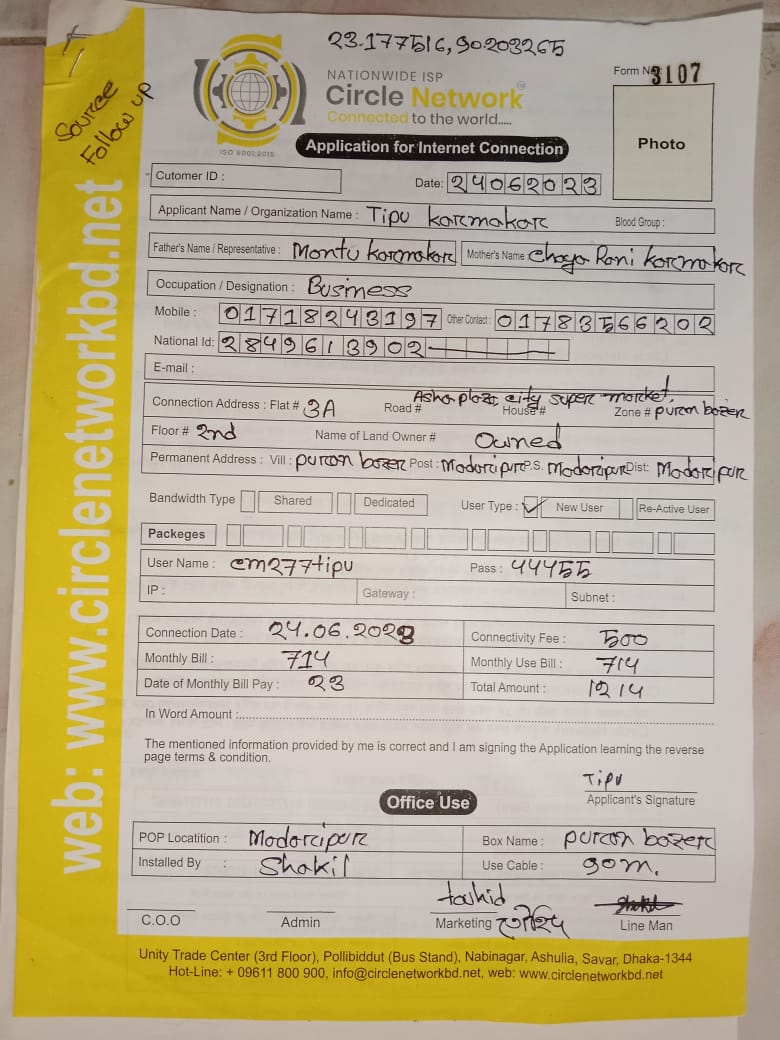 23.177516, 90.203265
Source
Follow up
NATIONWIDE ISP
Circle Network
Connected to the world.....
ISO 9001:2015
Form No 3107
Application for Internet Connection
Photo
Cutomer ID :
Date: 24062023
Applicant Name / Organization Name : Tipu karmakar Blood Group :
Father's Name / Representative : Montu karmakar Mother's Name Chaya Rani karmakar
Occupation / Designation : Business
Mobile : 01718243197 Other Contact : 01783566202
National Id: 2849613902
E-mail :
Connection Address : Flat # 3A Road # Asha plaza, city super market, House # Zone # puran bazar
Floor # 2nd Name of Land Owner # Owned
Permanent Address : Vill : puran bazar Post : Madaripur P.S. Madaripur Dist: Madaripur
Bandwidth Type Shared Dedicated User Type : ✓ New User Re-Active User
Packeges
User Name : cm277tipu Pass : 44455
IP : Gateway : Subnet :
Connection Date : 24.06.2023 Connectivity Fee : 500
Monthly Bill : 714 Monthly Use Bill : 714
Date of Monthly Bill Pay : 23 Total Amount : 1214
In Word Amount :
The mentioned information provided by me is correct and I am signing the Application learning the reverse
page terms & condition.
Tipu
Applicant's Signature
Office Use
POP Locatition : Madaripur Box Name : puran bazar
Installed By : Shakil Use Cable : 90m.
C.O.O Admin Marketing towhid Line Man
Unity Trade Center (3rd Floor), Pollibiddut (Bus Stand), Nabinagar, Ashulia, Savar, Dhaka-1344
Hot-Line: + 09611 800 900, info@circlenetworkbd.net, web: www.circlenetworkbd.net
web: www.circlenetworkbd.net